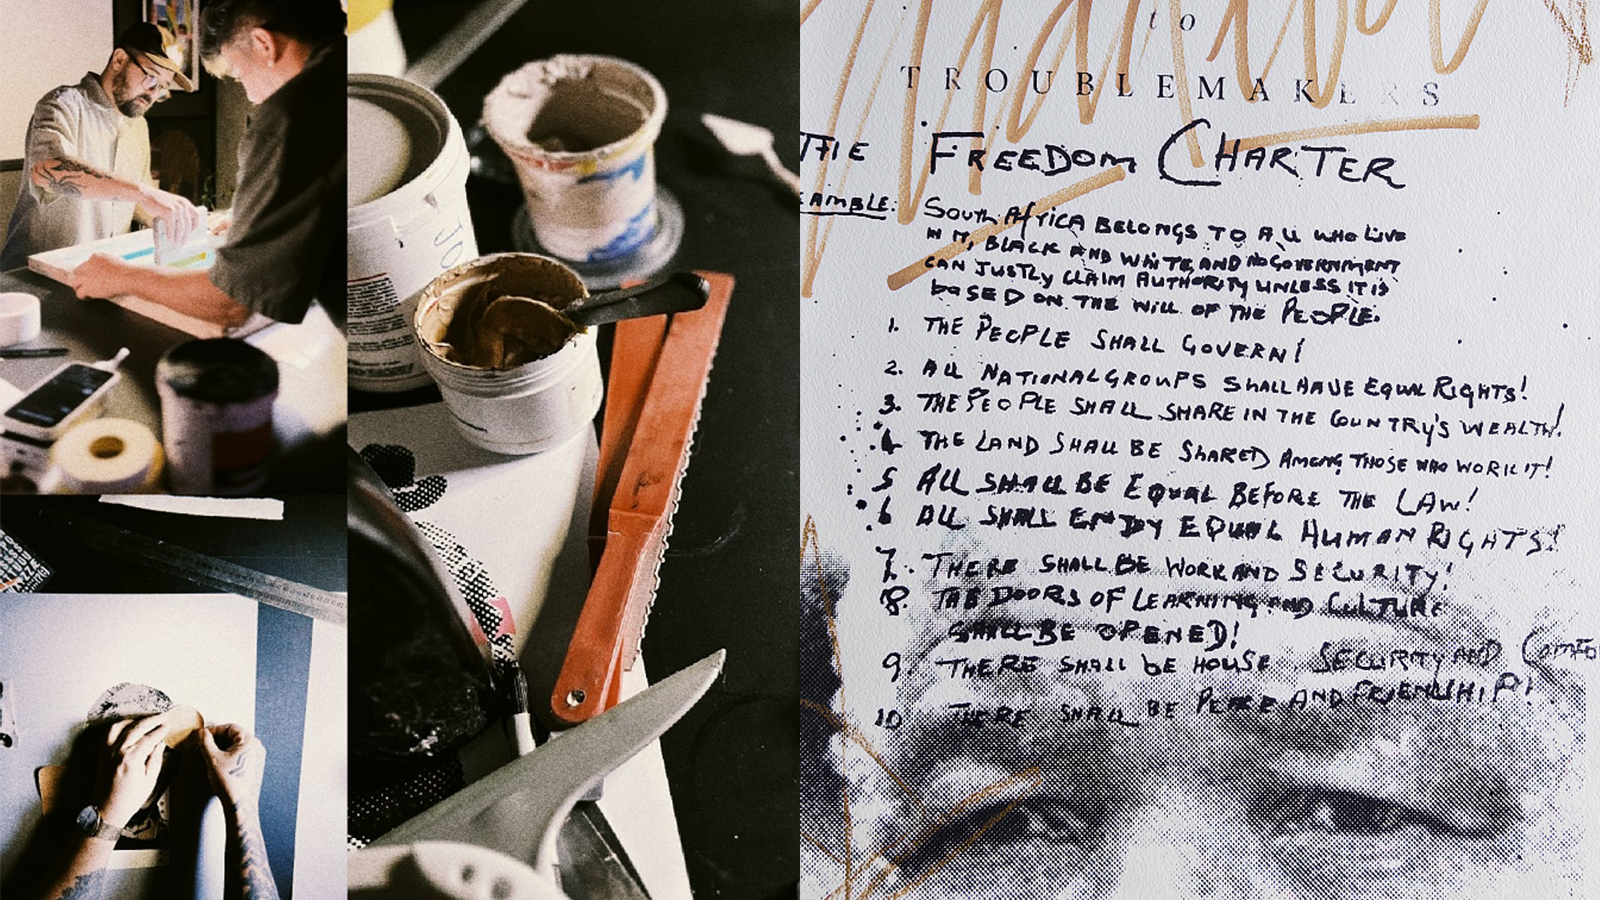 to
TROUBLEMAKERS
THE FREEDOM CHARTER
EAMBLE: SOUTH AFRICA BELONGS TO ALL WHO LIVE
IN IT, BLACK AND WHITE, AND NO GOVERNMENT
CAN JUSTLY CLAIM AUTHORITY UNLESS IT IS
BASED ON THE WILL OF THE PEOPLE.
1. THE PEOPLE SHALL GOVERN!
2. ALL NATIONAL GROUPS SHALL HAVE EQUAL RIGHTS!
3. THE PEOPLE SHALL SHARE IN THE COUNTRY'S WEALTH!
4 THE LAND SHALL BE SHARED AMONG THOSE WHO WORK IT!
5 ALL SHALL BE EQUAL BEFORE THE LAW!
6 ALL SHALL ENJOY EQUAL HUMAN RIGHTS!
7. THERE SHALL BE WORK AND SECURITY!
8. THE DOORS OF LEARNING AND CULTURE
SHALL BE OPENED!
9. THERE SHALL BE HOUSE SECURITY AND COMFO
10 THERE SHALL BE PEACE AND FRIENDSHIP!